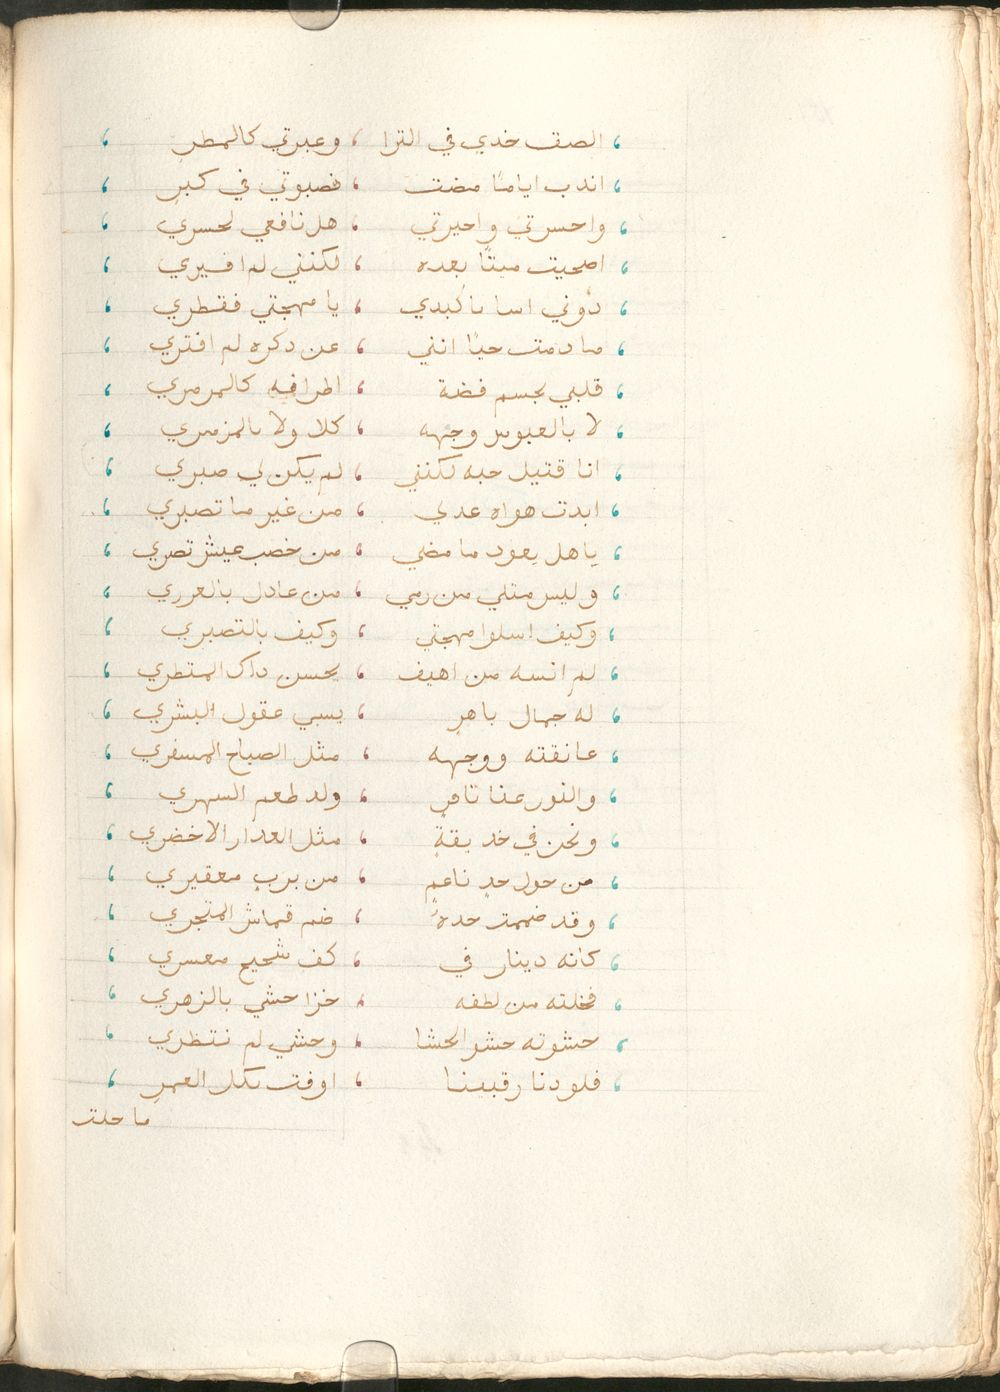 الصق خدي في الترا ، وعبرتي كالمطر ،
اندب اياما مضت ، فصبوتي في كبر ،
واحسرتي واحيرتي ، هل نافعي لحسري ،
اضحيت ميتًا بعده ، لكنني لم اقبري ،
دوني اسا ياكبدي ، يا مهجتي فقطري ،
مادمت حيًا انني ، عن دكره لم افتري ،
قلبي بجسم فضة ، اطرافه كالمرمري ،
لا بالعبوس وجهه ، كلا ولا بالمزمري ،
انا قتيل حبه لكنني ، لم يكن لي صبري ،
ابدت هواه عدلي ، من غير ما تصبري ،
يا هل يعود ما مضي ، من خصب عيش تصري ،
وليس متلي من رمي ، من عادل بالعرري ،
وكيف اسلوا مهجتي ، وكيف بالتصبري ،
لم انسه من اهيف ، بحسن داك المنظري ،
له جمال باهرٍ ، يسبي عقول البشري ،
عانقته ووجهه ، مثل الصباح المسفري ،
والنور عنا نافر ، ولد طعم السهري ،
ونحن في حديقةٍ ، مثل العدار الاخضري ،
من حول خدٍ ناعمٍ ، من بربٍ معقيري ،
وقد ضممت خده ، ضم قماش المتجري ،
كانه دينار في ، كف شحيح معسري ،
فخلته من لطفه ، خزا حشي بالزهري ،
حشوته حشو الحشا ، وحشي لم ننتظري ،
فلودنا رقيبنا ، اوفت بكل العمرِ ،
ما حلت